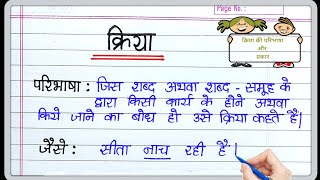 Page No.:
क्रिया
क्रिया की परिभाषा
और
प्रकार
परिभाषा : जिस शब्द अथवा शब्द - समूह के
द्वारा किसी कार्य के होने अथवा
किये जाने का बोध हो उसे क्रिया कहते हैं|
जैसे : सीता नाच रही है|